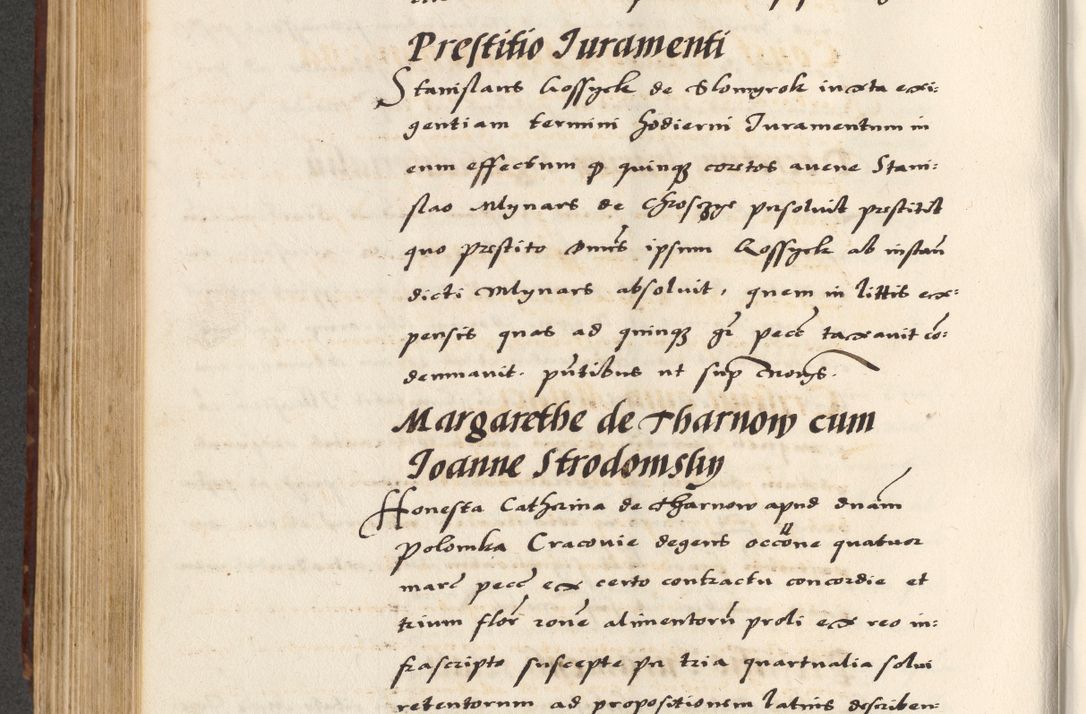 Prestitio Iuramenti
Stanislaus Gossyck de Slomyrok iuxta exi-
gentiam termini hodierni Iuramentum in
eum effectum q quinq coretos avene Stani-
slao Mlynars de Chroszye psolvit prestitit
quo prestito Dnus ipsum Gossyck ab instan
dicti Mlynars absolvit, quem in littis ex-
pensis quas ad quinq gr pecc taxavit con-
demnavit. pntibus ut sup
Margarethe de Tharnow cum
Ioanne Strodomsky
Honesta Catherina de Tharnow apud dnam
Polomka Cracovie degens occone quatuor
marc pecc ex certo contractu concordie et
trium flor rone alimentoru proli ex reo in-
frascripto suscepte pn tria quartualia solvi
retentorum ad propositionem latius describen-